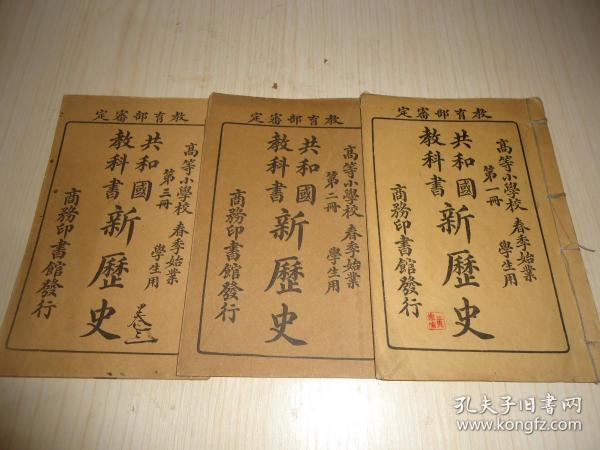 教育部審定
高等小學校 春季始業
第三冊 學生用
共和國
教科書
新歷史
商務印書館發行
教育部審定
高等小學校 春季始業
第二冊 學生用
共和國
教科書
新歷史
商務印書館發行
教育部審定
高等小學校 春季始業
第一冊 學生用
共和國
教科書
新歷史
商務印書館發行
孔夫子旧书网
www.kongfz.com